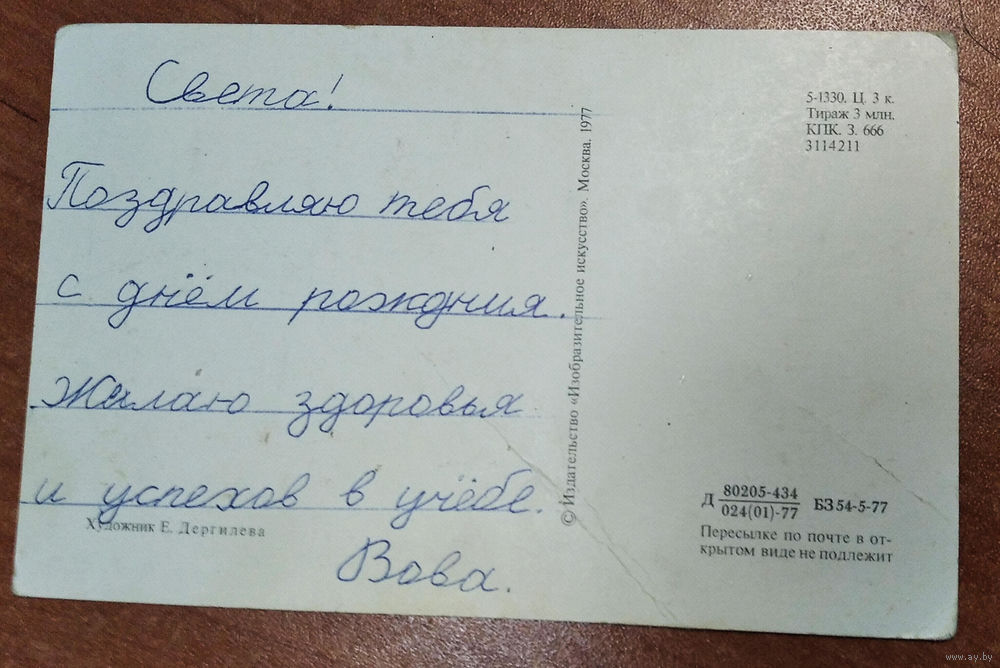 Света!
Поздравляю тебя
с днём рождния.
Желаю здоровья
и успехов в учёбе.
Вова.
Художник Е. Дергилева
© Издательство «Изобразительное искусство». Москва. 1977
5-1330. Ц. 3 к.
Тираж 3 млн.
КПК. З. 666
3114211
Д 80205-434
024(01)-77 БЗ 54-5-77
Пересылке по почте в от-
крытом виде не подлежит
www.ay.by